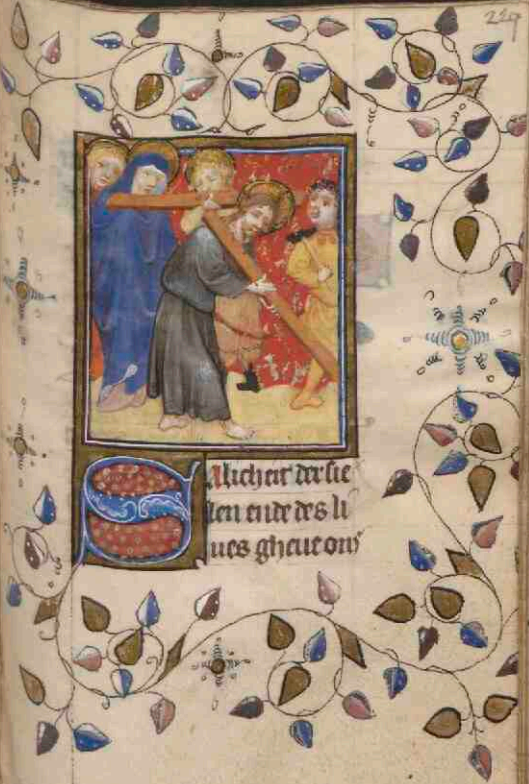 229
Salicheit der sie
len ende des li
ues gheue ons